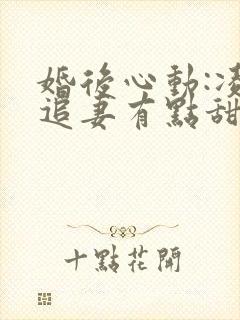 婚後心動:
追妻有點甜
十點花開